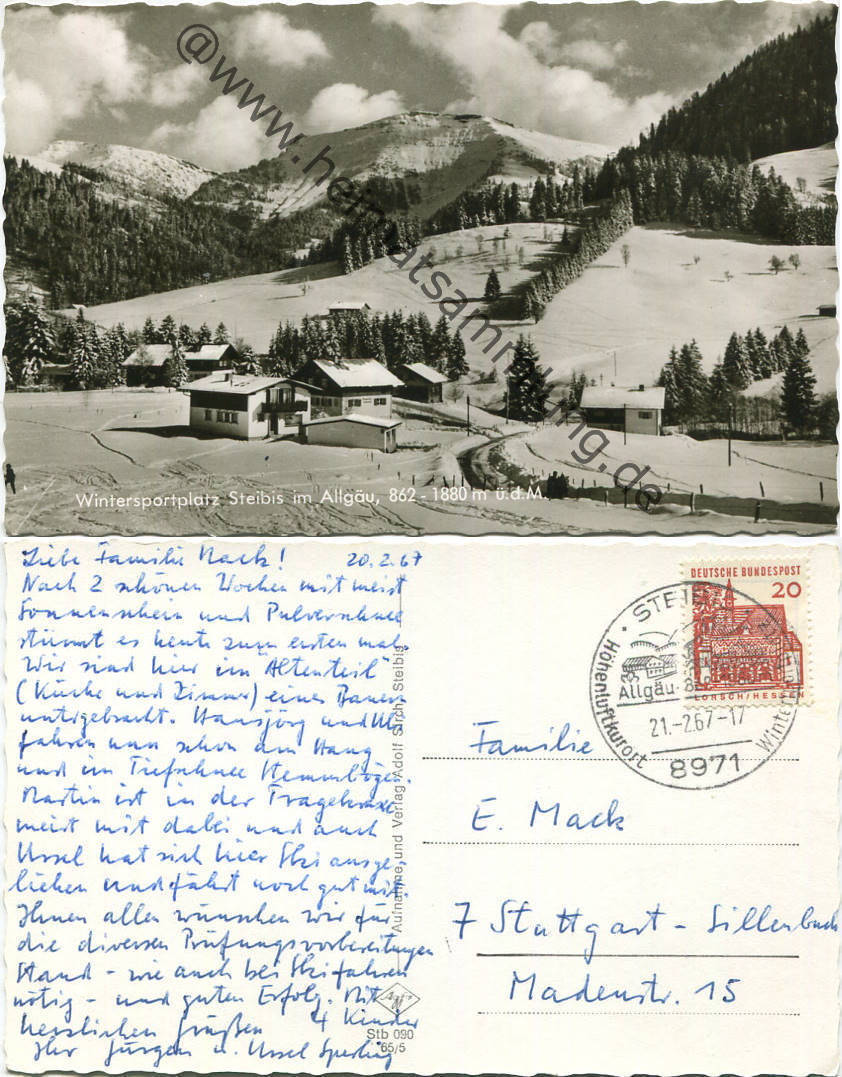 @www.heimatsammlung.de
Wintersportplatz Steibis im Allgäu, 862 - 1880 m ü.d.M.
Liebe Familie Mack! 20.2.67
Nach 2 schönen Wochen mit meist
Sonnenschein und Pulverschnee
stürmt es heute zum ersten mal.
Wir sind hier im "Altenteil"
(Küche und Zimmer) eines Bauern
untergebracht. Hansjörg und
fahren nun schon am Hang
und im Tiefschnee Stemmbögen.
Martin ist in der Tragekraxe
meist mit dabei und auch
Ursel hat sich hier Ski ausge-
liehen und fährt noch gut mit.
Ihnen allen wünschen wir für
die diversen Prüfungsvorbereitungen
Stand - wie auch bei Skifahren
nötig - und guten Erfolg. Mit
herzlichen Grüßen 4 Kinder
Ihr Jürgen u. Ursel Sperling
Aufnahme und Verlag Adolf Sirch, Steibis
Agfa
Stb 090
65/5
DEUTSCHE BUNDESPOST
20
LORSCH/HESSEN
STEIBIS
Allgäu
Höhenluftkurort
21.-2.67-17
8971
Familie
E. Mack
7 Stuttgart - Sillenbuch
Madenstr. 15